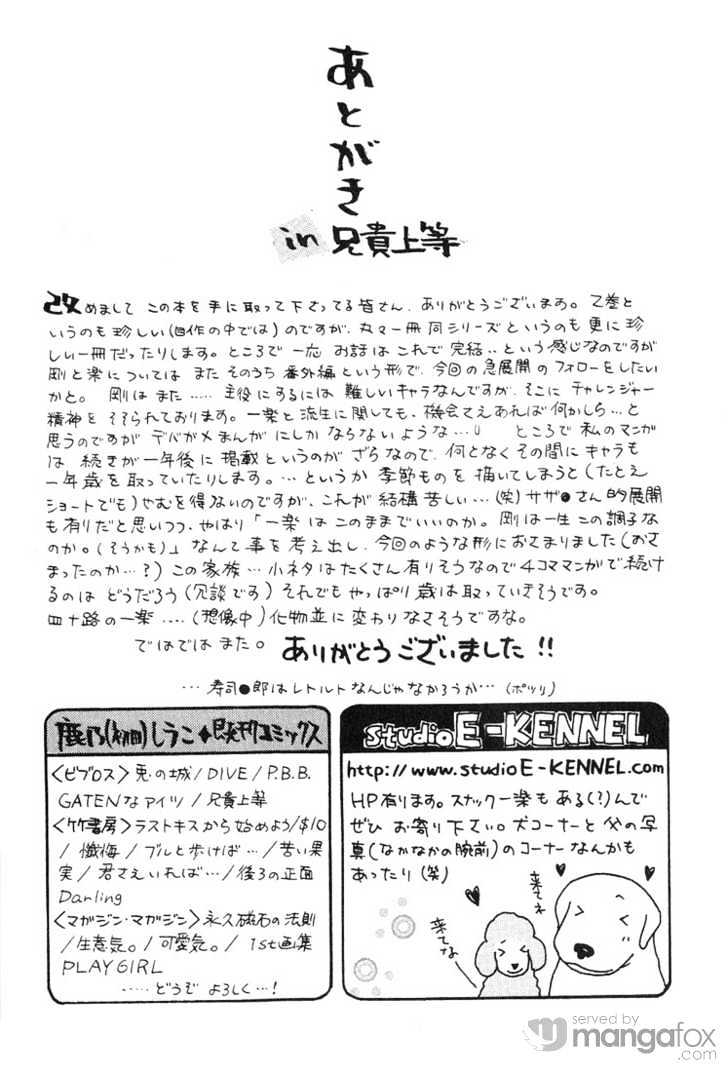 あとがき
in 兄貴上等
改めまして この本を手に取って下さってる皆さん、ありがとうございます。2巻と
いうのも珍しい(自作の中では)のですが、丸々一冊同シリーズというのも更に珍
しい一冊だったりします。ところで一応 お話は これで完結‥という感じなのですが
剛と楽については また そのうち 番外編という形で、今回の急展開のフォローをしたい
かと。 剛は また‥‥‥主役にするには 難しいキャラなんですが、そこに チャレンジャー
精神を そそられております。一楽と流生に関しても、機会さえあれば何かしら…と
思うのですが デバガメまんがにしか ならないような… ところで 私のマンガ
は 続きが一年後に 掲載というのが ざらなので、何となくその間にキャラも
一年歳を取っていたりします。…というか 季節ものを 描いてしまうと(たとえ
ショートでも)やむを得ないのですが、これが結構 苦しい…(笑)サザ●さん的展開
も有りだと思いつつ、やはり「一楽は このままでいいのか。剛は一生 この調子な
のか。(そうかも)」なんて事を考え出し、今回のような形におさまりました(おさ
まったのか…?)この家族… 小ネタはたくさん有りそうなので4コママンガで続け
るのは どうだろう(冗談です)それでも やっぱり 歳は取っていきそうです。
四十路の一楽 ‥‥(想像中)化物並に変わりなさそうですな。
ではでは また。 ありがとうございました!!
…寿司●郎はレトルトなんじゃなかろうか…(ポツリ)
鹿乃(初田)しうこ◆既刊コミックス
〈ビブロス〉兎の城/DIVE/P.B.B.
GATENなアイツ/兄貴上等
〈竹書房〉ラストキスから始めよう/$10
/ 懺悔 / ブルと歩けば… /苦い果
実/ 君さえいれば…/後ろの正面
Darling
〈マガジン・マガジン〉永久磁石の法則
/生意気。/可愛気。/ 1st画集
PLAY GIRL
‥‥‥どうぞ よろしく…!
studio E-KENNEL
http://www.studioE-KENNEL.com
HP有ります。スナック一楽も ある(?)んで
ぜひ お寄り下さい。犬コーナーと 父の写
真(なかなかの腕前)のコーナーなんかも
あったり(笑)
来てネ
来てな
served by
mangafox
.com